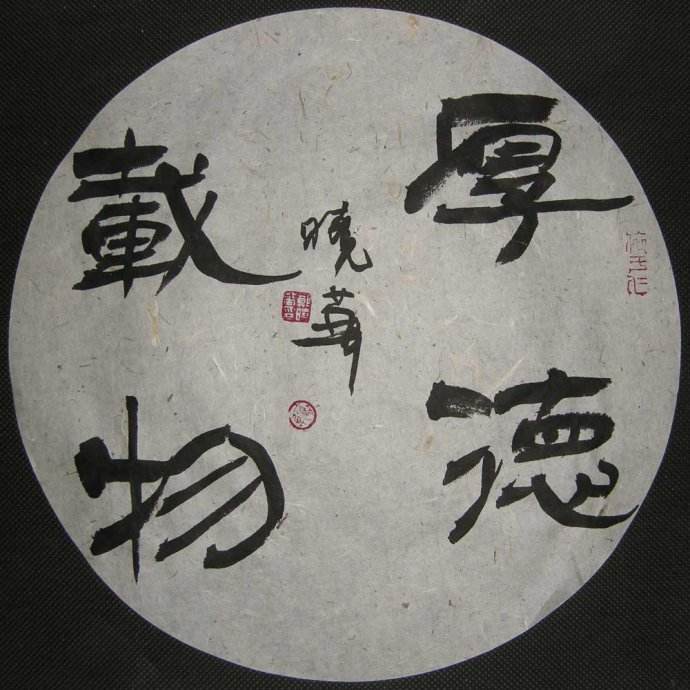 厚德
載物
曉華